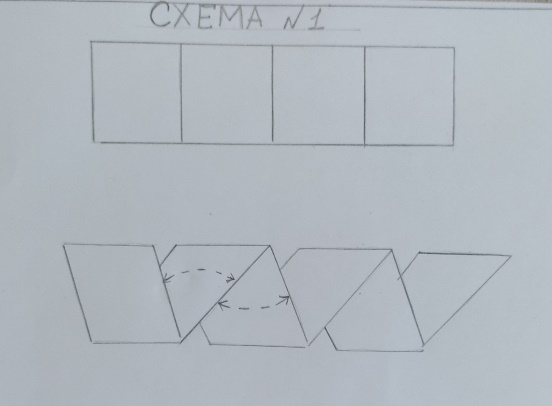 СХЕМА №1